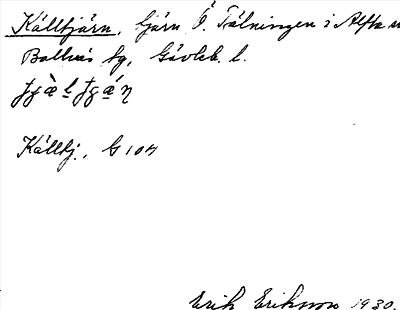 Källtjärn, tjärn Ö. Tälningen i Alfta
Bollnäs fg, Gävleb. l.
Källtj., G 104
Erik Eriksson 1930.